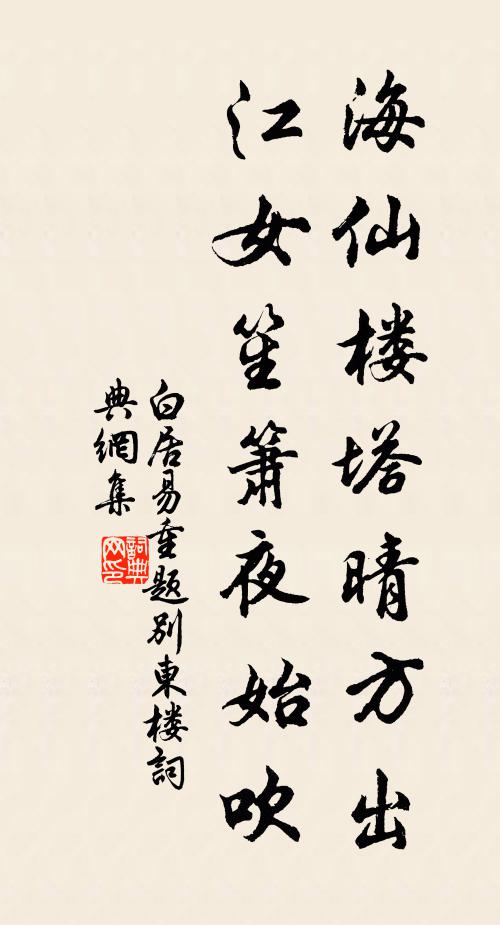 海仙楼塔晴方出
江女笙箫夜始吹
白居易重题别東楼詞
典網集
詞典网印